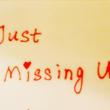 Just
Missing U